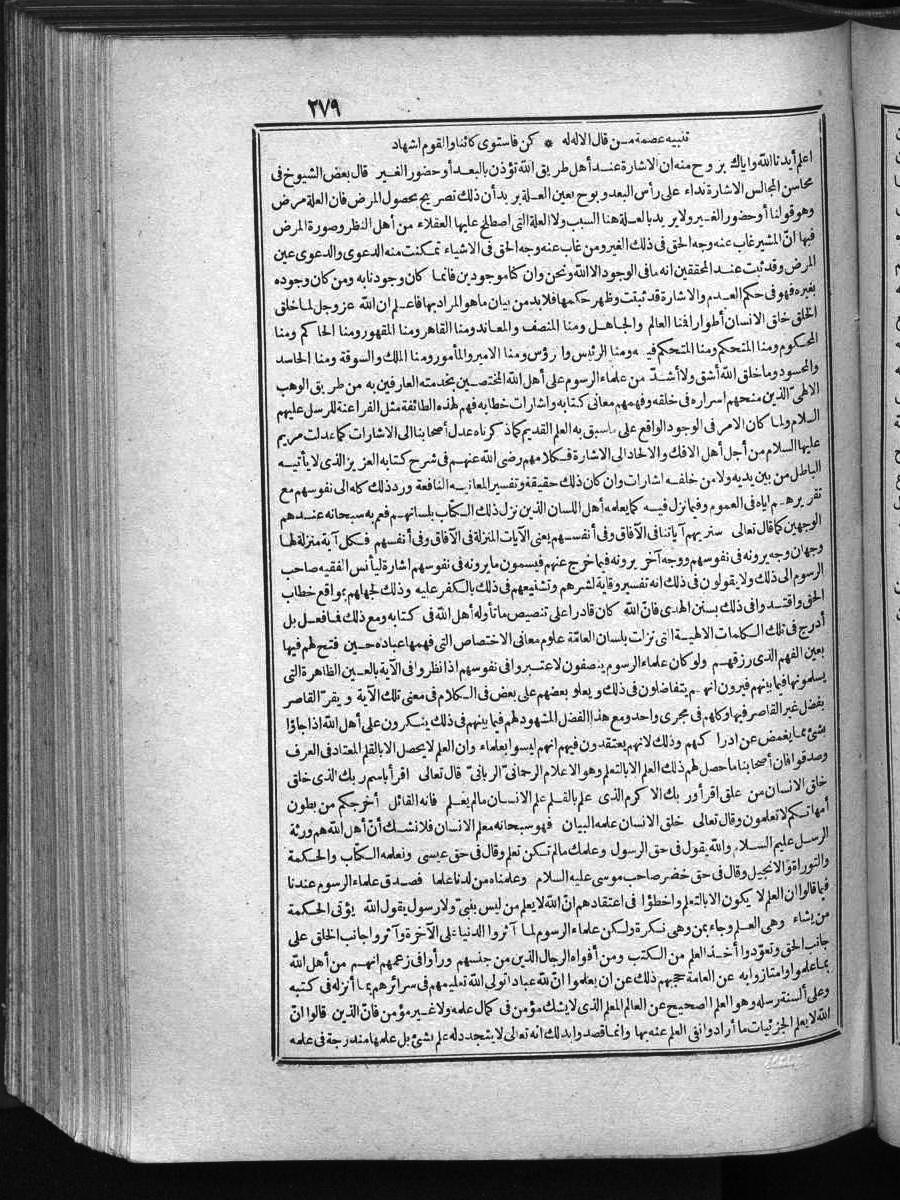 ٢٧٩
تنبيه عصمة من قال الاله له * كن فاستوى كائنا والقوم اشهاد
اعلم أيدنا الله واياك بروح منه ان الاشارة عند أهل طريق الله تؤذن بالبعد أو حضور الغير قال بعض الشيوخ فى
محاسن المجالس الاشارة نداء على رأس البعد وبوح بعين العلة يريد أن ذلك تصريح بحصول المرض فان العلة مرض
وهو قولنا أو حضور الغير ولا يريد بالعلة هنا السبب ولا العلة التى اصطلح عليها العقلاء من أهل النظر وصورة المرض
فيها انّ المشير غاب عنه وجه الحق فى ذلك الغير ومن غاب عنه وجه الحق فى الاشياء تمكنت منه الدعوى والدعوى عين
المرض وقد ثبت عند المحققين انه ما فى الوجود الا الله ونحن وان كنا موجودين فانما كان وجودنا به ومن كان وجوده
بغيره فهو فى حكم العدم والاشارة قد ثبتت وظهر حكمها فلا بد من بيان ما هو المراد بها فاعلم ان الله عز وجل لما خلق
الخلق خلق الانسان أطوارا فمنا العالم والجاهل ومنا المنصف والمعاند ومنا القاهر ومنا المقهور ومنا الحاكم ومنا
المحكوم ومنا المتحكم ومنا المتحكم فيه ومنا الرئيس والمرؤس ومنا الامير والمأمور ومنا الملك والسوقة ومنا الحاسد
والمحسود وما خلق الله أشق ولا أشدّ من علماء الرسوم على أهل الله المختصين بخدمته العارفين به من طريق الوهب
الالهىّ الذين منحهم اسراره فى خلقه وفهمهم معانى كتابه واشارات خطابه فهم لهذه الطائفة مثل الفراعنة للرسل عليهم
السلام ولما كان الامر فى الوجود الواقع على ما سبق به العلم القديم كما ذكرناه عدل أصحابنا الى الاشارات كما عدلت مريم
عليها السلام من أجل أهل الافك والالحاد الى الاشارة فكلامهم رضى الله عنهم فى شرح كتابه العزيز الذى لا يأتيه
الباطل من بين يديه ولا من خلفه اشارات وان كان ذلك حقيقة وتفسيرا لمعانيه النافعة ورد ذلك كله الى نفوسهم مع
تقريرهم اياه فى العموم وفيما نزل فيه كما يعلمه أهل اللسان الذين نزل ذلك الكتاب بلسانهم فعم به سبحانه عندهم
الوجهين كما قال تعالى سنريهم آياتنا فى الآفاق وفى أنفسهم يعنى الآيات المنزلة فى الآفاق وفى أنفسهم فكل آية منزلة لها
وجهان وجه يرونه فى نفوسهم ووجه آخر يرونه فيما خرج عنهم فيسمون ما يرونه فى نفوسهم اشارة ليأنس الفقيه صاحب
الرسوم الى ذلك ولا يقولون فى ذلك انه تفسير وقاية لشرهم وتشنيعهم فى ذلك بالكفر عليه وذلك لجهلهم بمواقع خطاب
الحق واقتدوا فى ذلك بسنن الهدى فانّ الله كان قادرا على تنصيص ما تأوله أهل الله فى كتابه ومع ذلك فما فعل بل
أدرج فى تلك الكلمات الالهية التى نزلت بلسان العامّة علوم معانى الاختصاص التى فهمها عباده حين فتح لهم فيها
بعين الفهم الذى رزقهم ولو كان علماء الرسوم ينصفون لاعتبروا فى نفوسهم اذا نظروا فى الآية بالعين الظاهرة التى
يسلمونها فيما بينهم فيرون انهم يتفاضلون فى ذلك ويعلو بعضهم على بعض فى الكلام فى معنى تلك الآية ويقرّ القاصر
بفضل غير القاصر فيها وكلهم فى مجرى واحد ومع هذا الفضل المشهود لهم فيما بينهم فى ذلك ينكرون على أهل الله اذا جاؤا
بشئ مما يغمض عن ادراكهم وذلك لانهم يعتقدون فيهم انهم ليسوا بعلماء وان العلم لا يحصل الا بالقلم المعتاد فى العرف
وصدقوا فان أصحابنا ما حصل لهم ذلك العلم الا بالتعلم وهو الاعلام الرحمانىّ الربانىّ قال تعالى اقرأ باسم ربك الذى خلق
خلق الانسان من علق اقرأ وربك الاكرم الذى علم بالقلم علم الانسان ما لم يعلم فانه القائل أخرجكم من بطون
أمهاتكم لا تعلمون وقال تعالى خلق الانسان علمه البيان فهو سبحانه معلم الانسان فلا نشك أنّ أهل الله هم ورثة
الرسل عليهم السلام والله يقول فى حق الرسول وعلمك ما لم تكن تعلم وقال فى حق عيسى ونعلمه الكتاب والحكمة
والتوراة والانجيل وقال فى حق خضر صاحب موسى عليه السلام وعلمناه من لدنا علما فصدق علماء الرسوم عندنا
فيما قالوا ان العلم لا يكون الا بالتعلم واخطؤا فى اعتقادهم انّ الله لا يعلم من ليس بنبىّ ولا رسول يقول الله يؤتى الحكمة
من يشاء وهى العلم وجاء بمن وهى نكرة ولكن علماء الرسوم لما آثروا الدنيا على الآخرة وآثروا جانب الخلق على
جانب الحق وتعوّدوا أخذ العلم من الكتب ومن أفواه الرجال الذين من جنسهم ورأوا فى زعمهم انهم من أهل الله
بما علموا وامتازوا به عن العامة حجبهم ذلك عن ان يعلموا انّ لله عبادا تولى الله تعليمهم فى سرائرهم بما أنزله فى كتبه
وعلى ألسنة رسله وهو العلم الصحيح عن العالم المعلم الذى لا يشك مؤمن فى كمال علمه ولا غير مؤمن فانّ الذين قالوا انّ
الله لا يعلم الجزئيات ما أرادوا نفى العلم عنه بها وانما قصدوا بذلك انه تعالى لا يتجدد له علم بشئ بل علمها مندرجة فى علمه